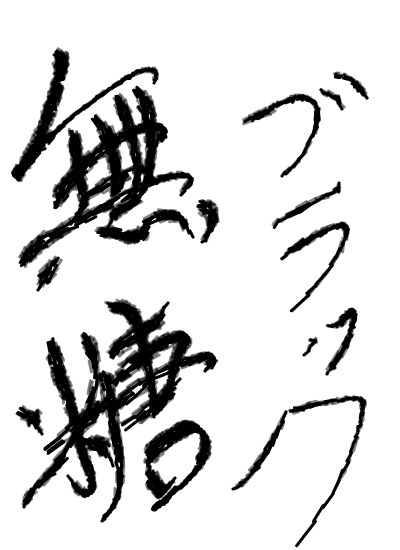 ブラック
無糖